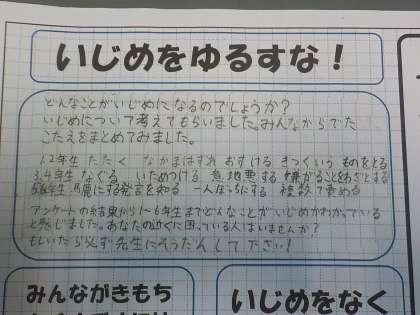 いじめをゆるすな！
どんなことがいじめになるのでしょうか？
いじめについて考えてもらいました。みんなからでた
こたえをまとめてみました。
1.2年生 たたく なかまはずれ おす ける きつくいう ものをとる
3.4年生 なぐる いためつける 意地悪する 嫌がることをわざとする
5.6年生 馬鹿にする発言をする 一人ぼっちにする 複数で責める
アンケートの結果から1〜6年生までどんなことがいじめかわかっている
と感じました。あなたの近くに困っている人はいませんか？
もしいたら必ず先生にそうだんして下さい！
みんながきもち
いじめをなく